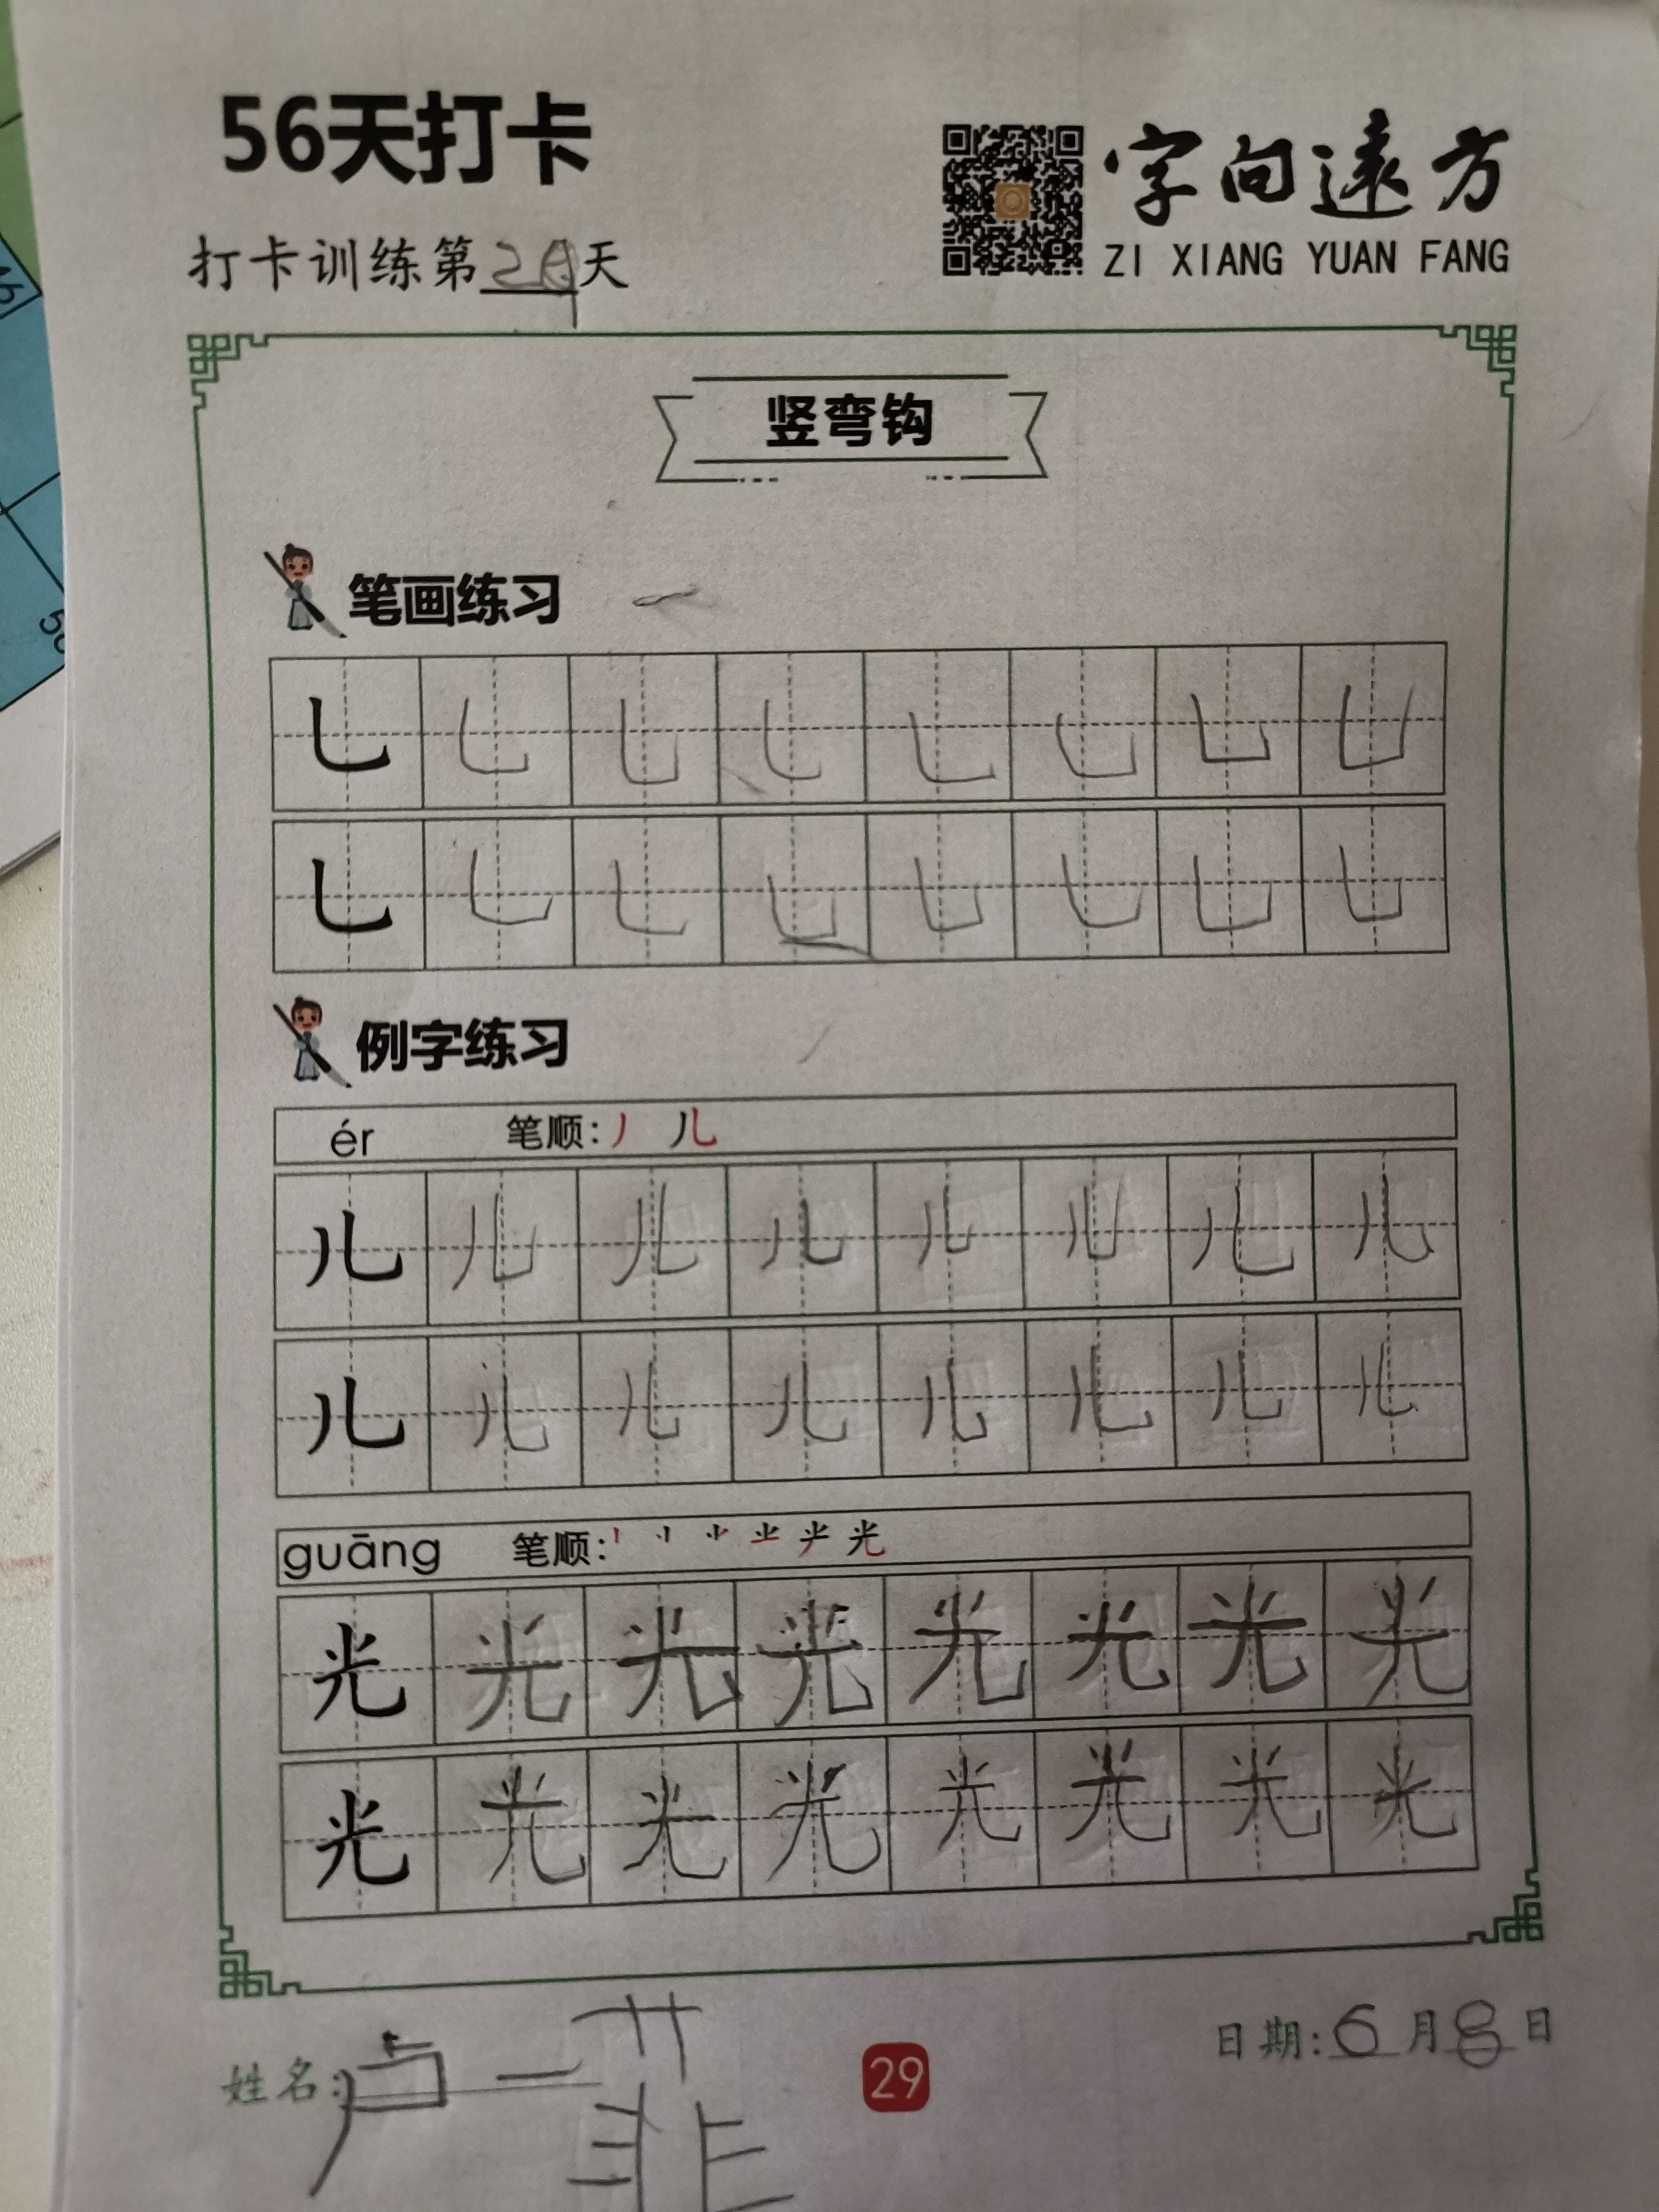 56天打卡
字向遠方
ZI XIANG YUAN FANG
打卡训练第29天
竖弯钩
笔画练习
㇄ ㇄ ㇄ ㇄ ㇄ ㇄ ㇄ ㇄
㇄ ㇄ ㇄ ㇄ ㇄ ㇄ ㇄ ㇄
例字练习
ér 笔顺: 丿 儿
儿 儿 儿 儿 儿 儿 儿 儿
儿 儿 儿 儿 儿 儿 儿 儿
guāng 笔顺:
光 光 光 光 光 光 光 光
光 光 光 光 光 光 光 光
姓名: 卢一菲
29
日期: 6月8日